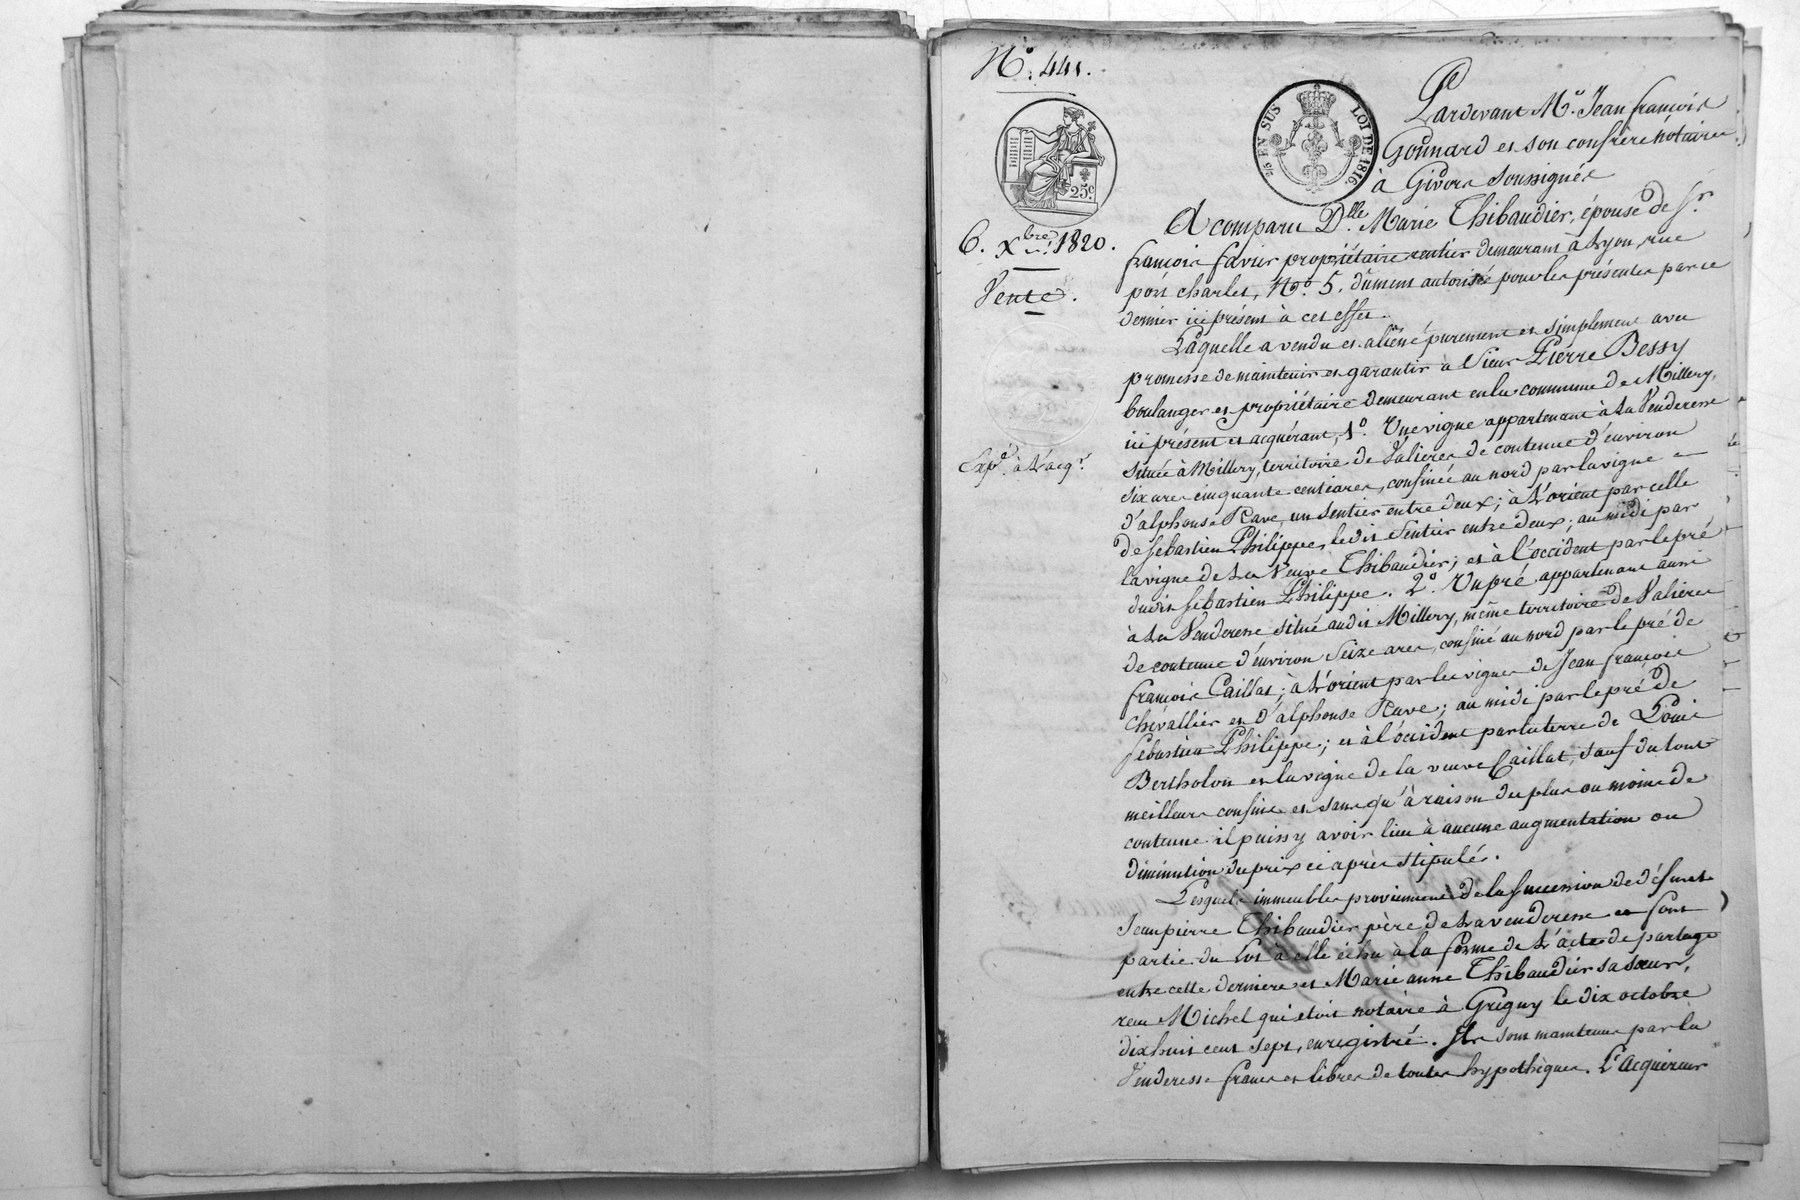 N.º 441.
25 c.
25 EN SUS
LOI DE 1816.
6. Xbre 1820.
Vente.
Expé. à L'acqr.
Pardevant Me. Jean françois
Gonnard et son confrère nótaires
à Givors soussignés
A comparu Dlle. Marie Thibaudier, épouse de Sr.
françois favier propriétaire rentier demeurant à Lyon, rue
port charlet, N.º 5, dûment autorisée pour les présentes par ce
dernier ici présent à cet effet.
Laquelle a vendu et aliéné purement et simplement avec
promesse de maintenir et garantir à Sieur Pierre Bessy
boulanger et propriétaire demeurant en la commune de Millery,
ici présent et acquérant, 1.º Une vigne appartenant à La Venderesse
située à Millery, territoire de Valieres de contenue d'environ
six ares cinquante centiares, confinée au nord par la vigne
d'alphonse Rave, un sentier entre deux; à L'orient par celle
de sébastien Philippe, ledit sentier entre deux; au midi par
la vigne de La Veuve Thibaudier; et à l'occident par le pré
dudit sébastien Philippe. 2.º Un pré appartenant aussi
à La Venderesse situé audit Millery, même territoire de Valieres
de contenue d'environ Seize ares, confiné au nord par le pré de
françois Caillat; à L'orient par les vignes de Jean françois
Chevallier et d'alphonse Rave; au midi par le pré de
sébastien Philippe; et à l'occident par la terre de Louis
Bertholon et la vigne de la veuve Caillat, sauf du tout
meilleurs confins et sans qu'à raison du plus ou moins de
contenue il puissy avoir lieu à aucune augmentation ou
diminution du prix ci après stipulé.
Lesquels immeubles proviennent de la Succession de défunt
Jean pierre Thibaudier père de La venderesse et font
partie du Lot à elle échu à la forme de L'acte de partage
entre cette dernière et Marie anne Thibaudier sa sœur,
reçu Michel qui étoit notaire à Grigny le dix octobre
dix huit cent sept, enregistré. Ils sont maintenus par la
Venderesse francs et libres de toutes hypothèques. L'acquéreur